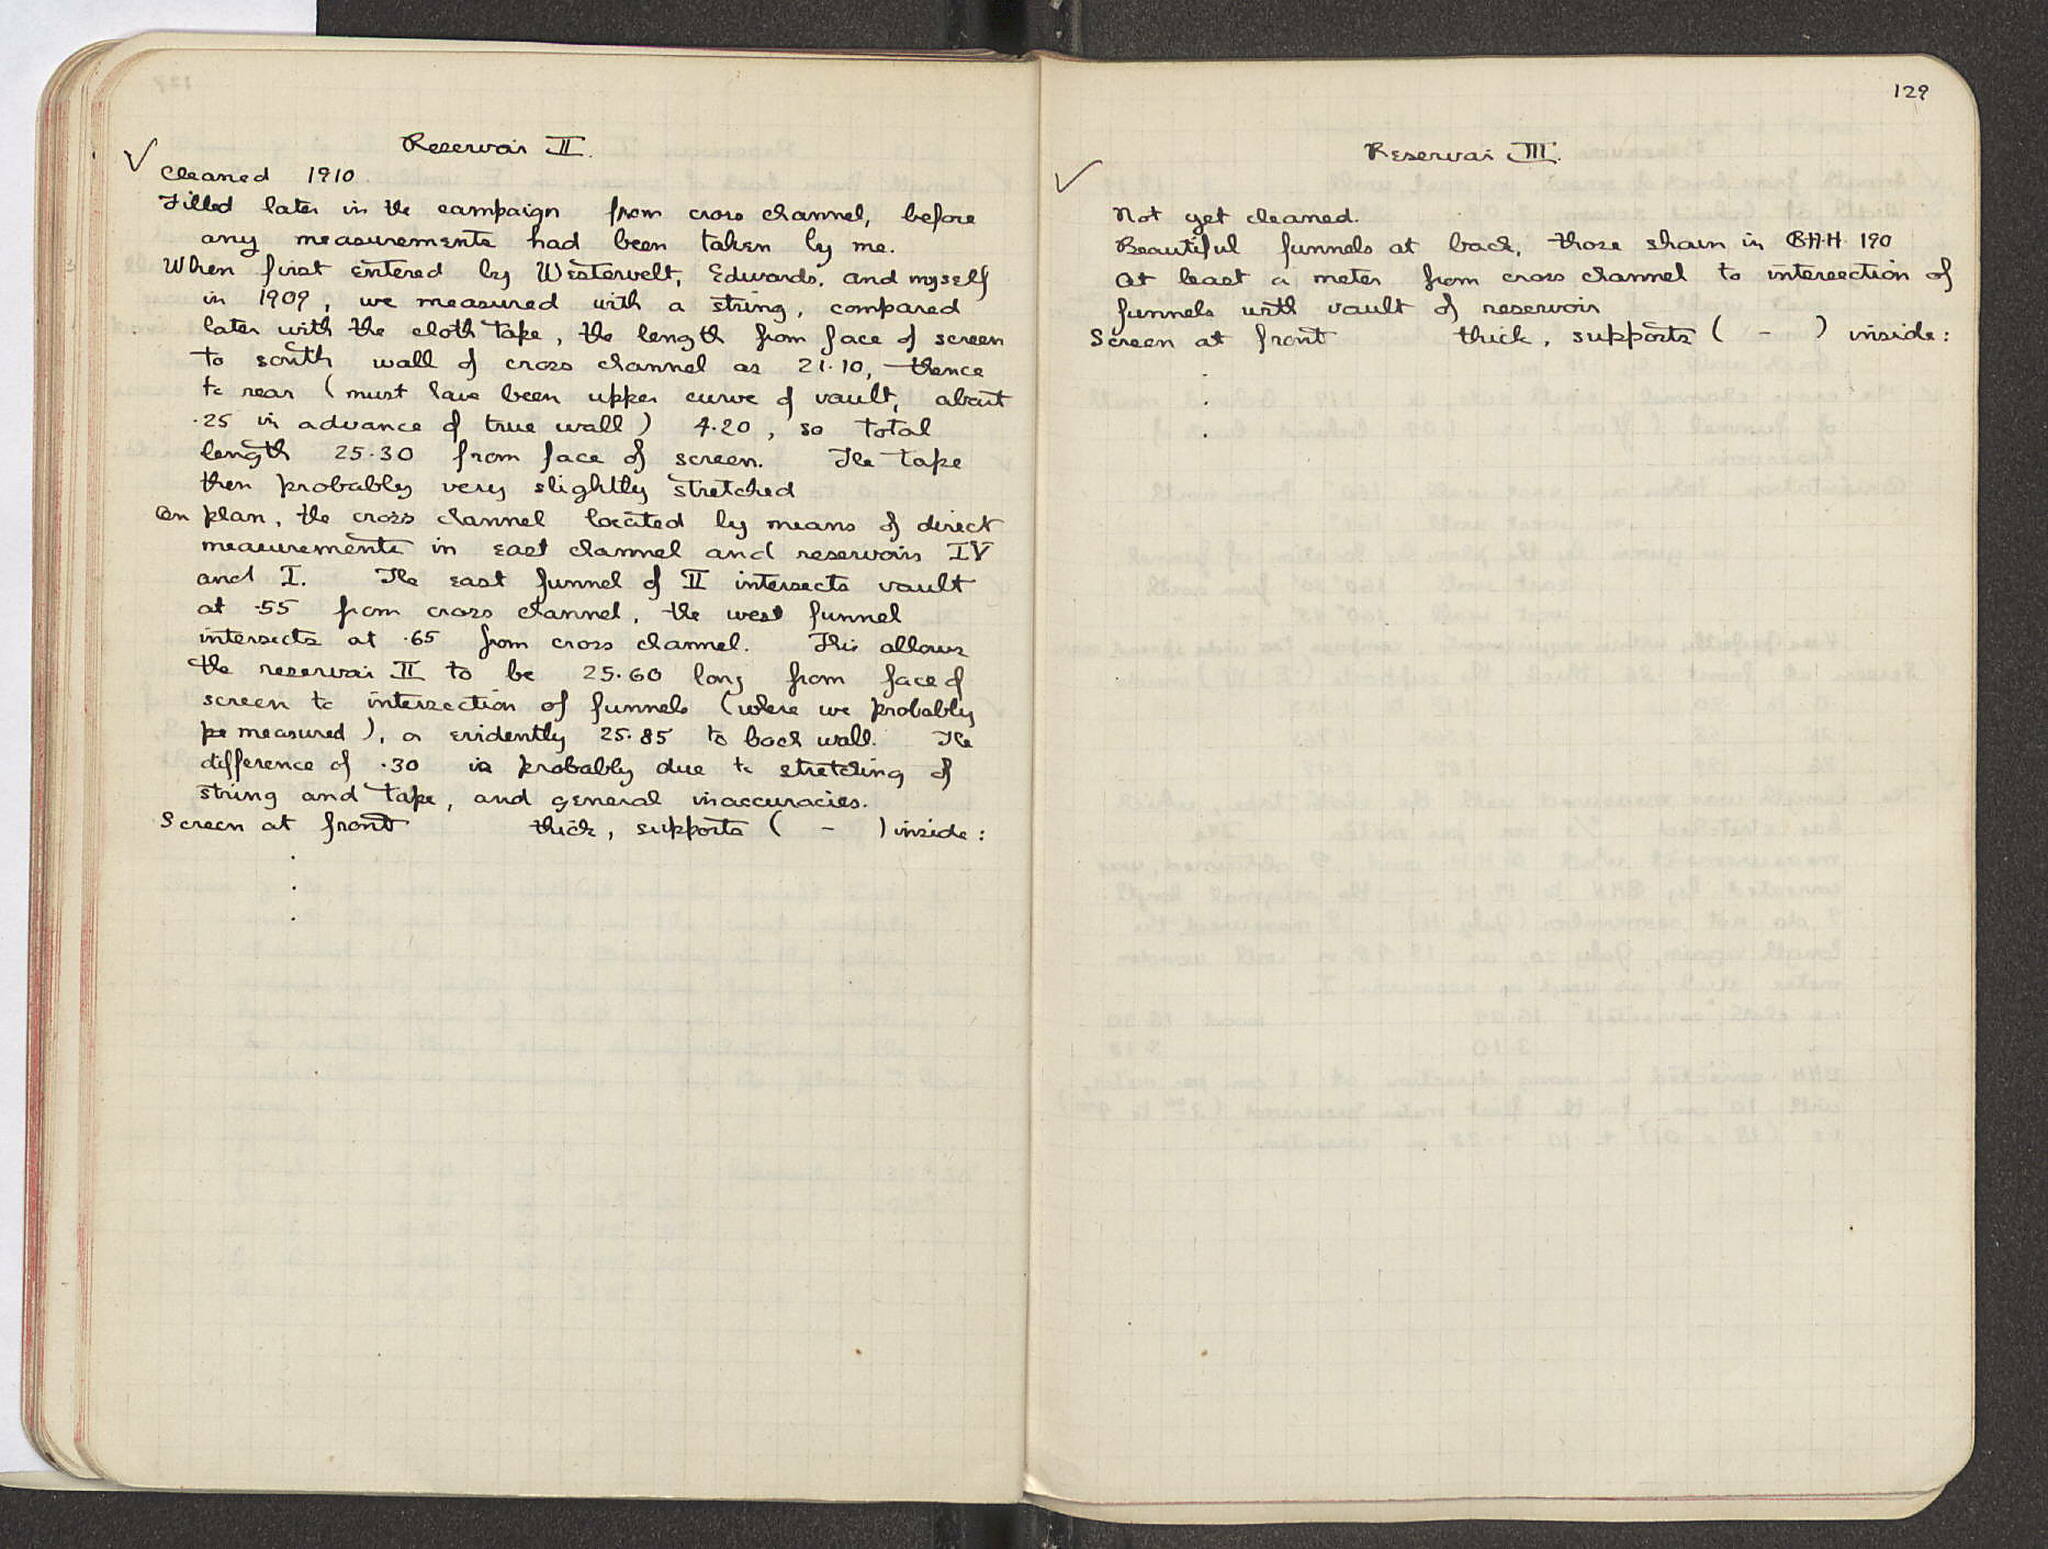 Reservoir II.
✓
Cleaned 1910
Filled later in the campaign from cross channel, before
any measurements had been taken by me.
When first entered by Westervelt, Edwards, and myself
in 1909, we measured with a string, compared
later with the cloth tape, the length from face of screen
to south wall of cross channel as 21.10, thence
to rear (must have been upper curve of vault, about
.25 in advance of true wall) 4.20, so total
length 25.30 from face of screen. The tape
then probably very slightly stretched
On plan, the cross channel located by means of direct
measurements in east channel and reservoirs IV
and I. The east funnel of II intersects vault
at .55 from cross channel, the west funnel
intersects at .65 from cross channel. This allows
the reservoir II to be 25.60 long from face of
screen to intersection of funnels (where we probably
measured), or evidently 25.85 to back wall. The
difference of .30 is probably due to stretching of
string and tape, and general inaccuracies.
Screen at front thick, supports ( - ) inside:
.
.
.
129
Reservoir III.
✓
Not yet cleaned.
Beautiful funnels at back, those shown in B.H.H 190
At least a meter from cross channel to intersection of
funnels with vault of reservoir
Screen at front thick, supports ( - ) inside:
.
.
.